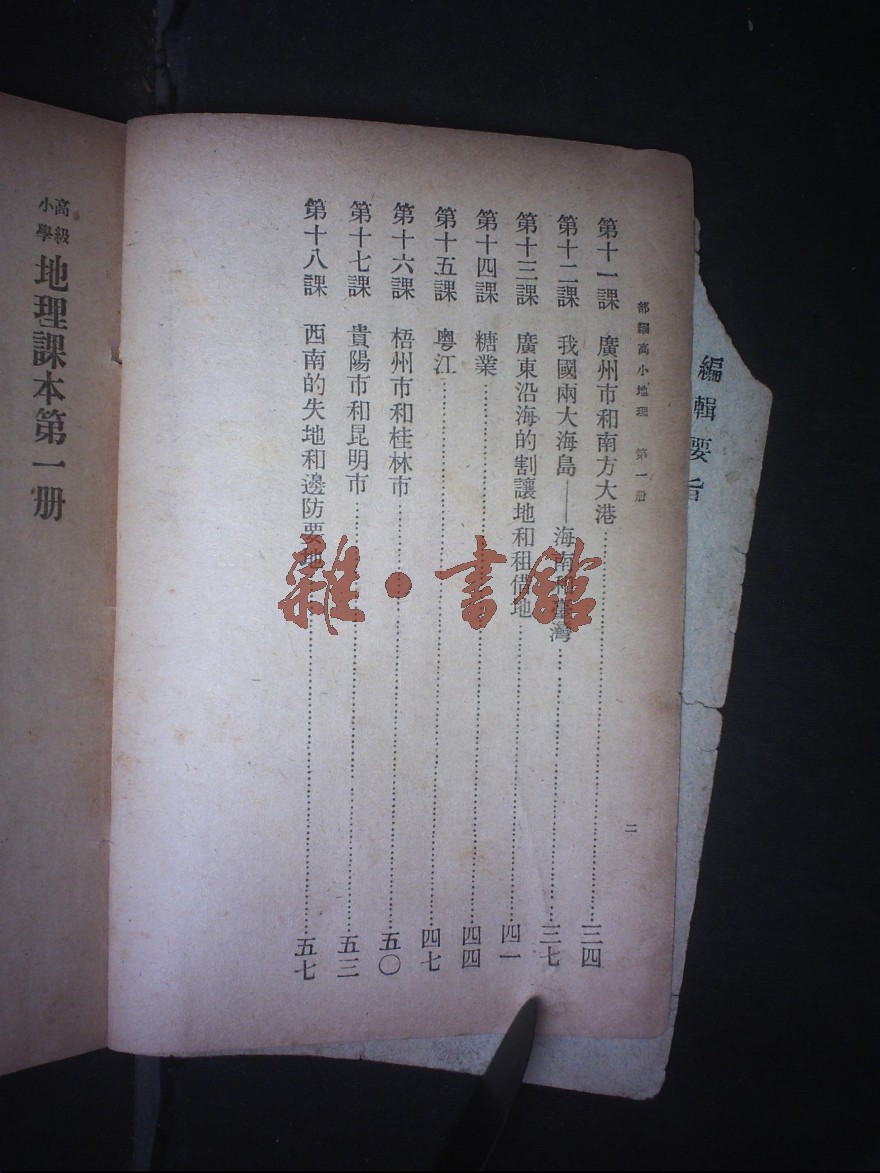 編輯要旨
部編高小地理 第一册
二
第十一課 廣州市和南方大港……三四
第十二課 我國兩大海島——海南和臺灣……三七
第十三課 廣東沿海的割讓地和租借地……四一
第十四課 糖業……四四
第十五課 粵江……四七
第十六課 梧州市和桂林市……五〇
第十七課 貴陽市和昆明市……五三
第十八課 西南的失地和邊防要地……五七
高級小學 地理課本第一册
雜·書館